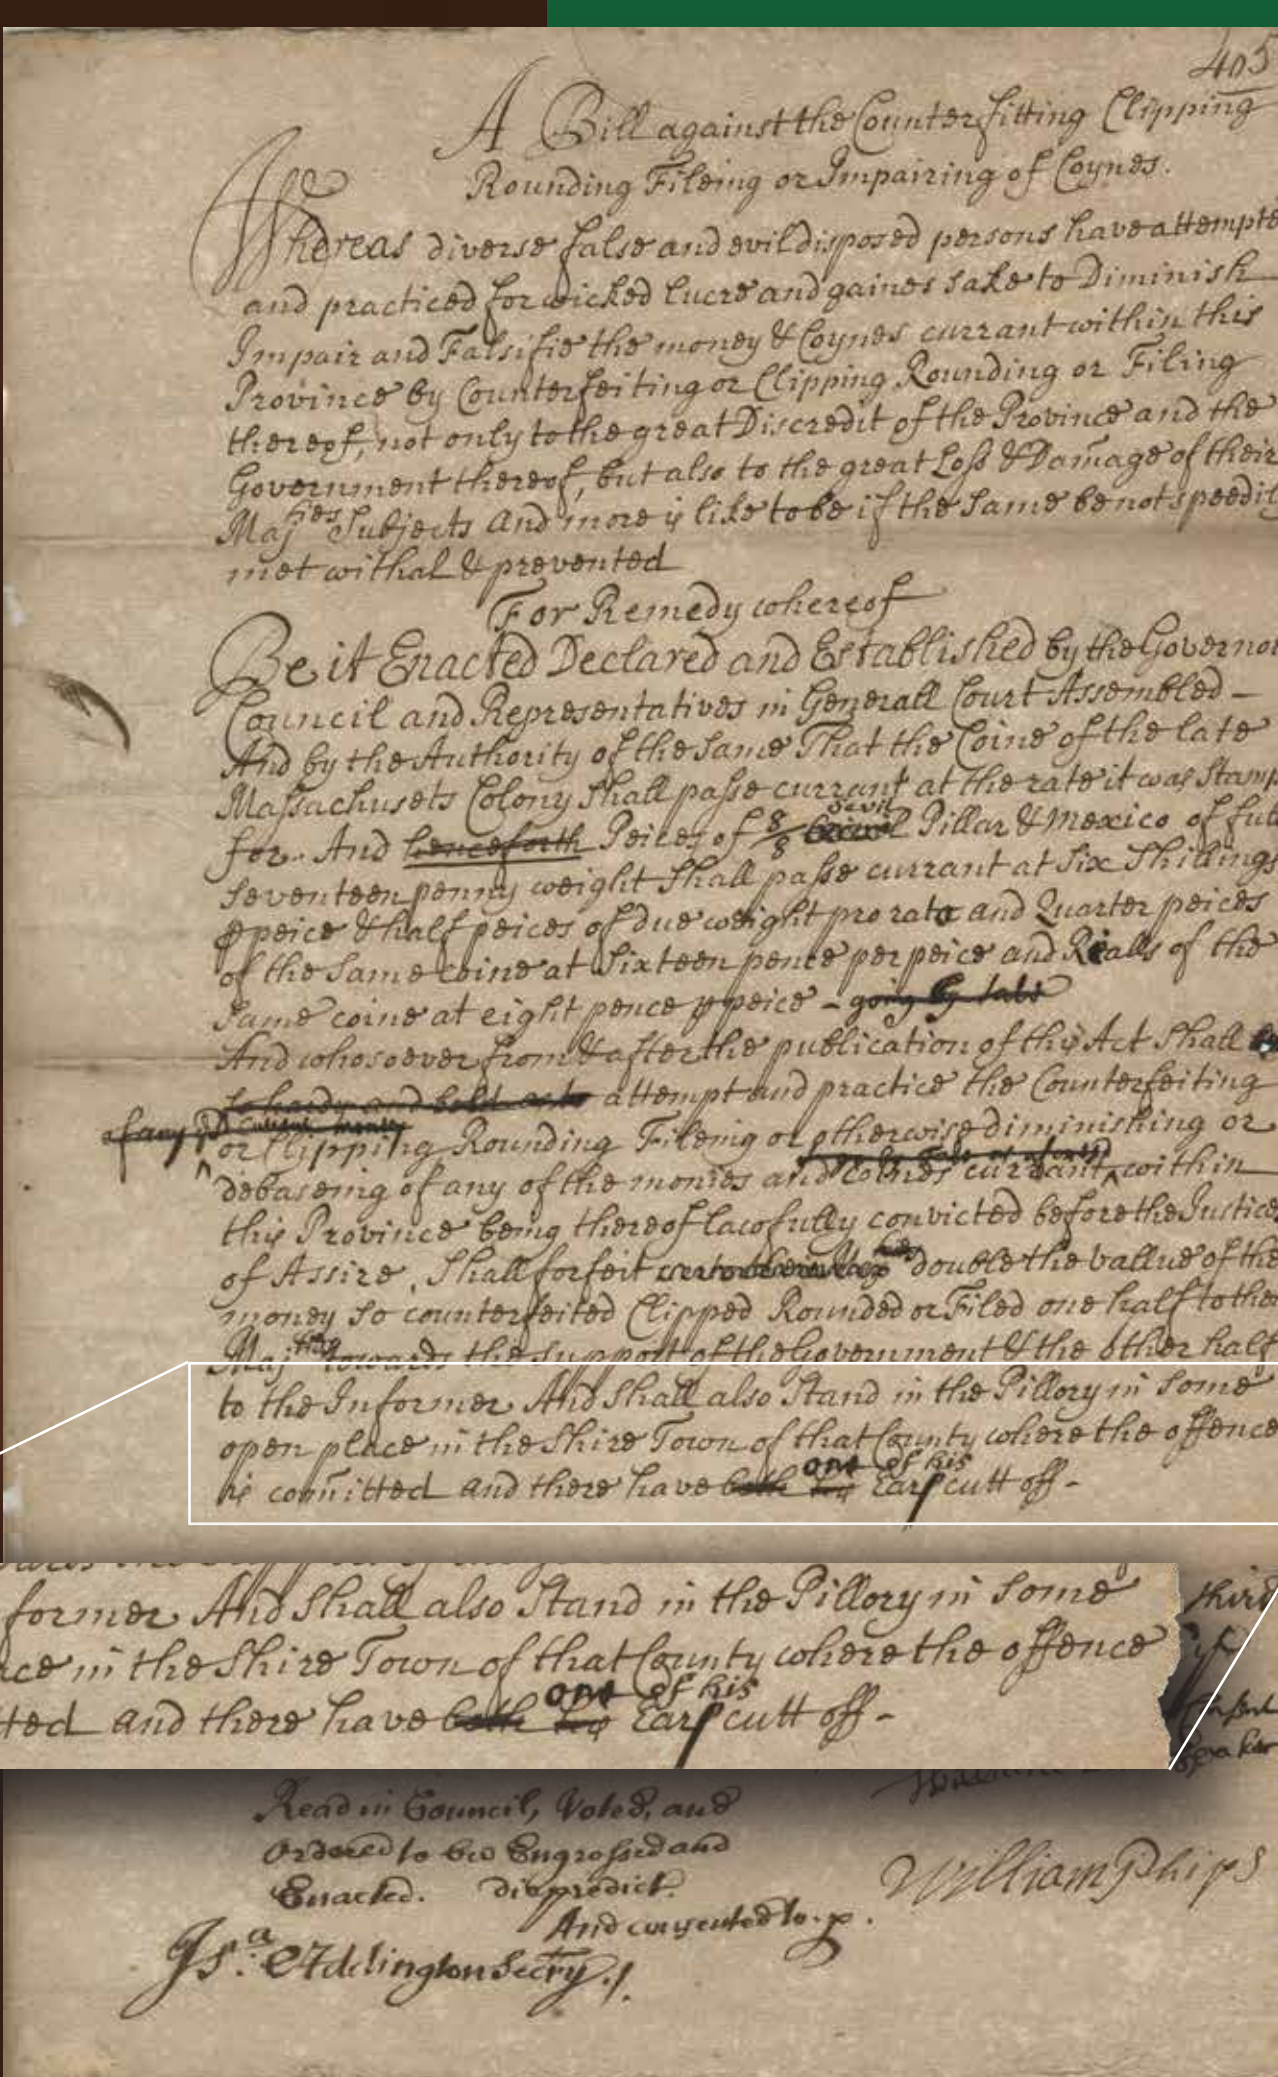 405
A Bill against the Counterfitting Clipping
Rounding Fileing or Impairing of Coynes.
Whereas diverse false and evil disposed persons have attempte
and practiced for wicked lucre and gaines sake to Diminish
Impair and Falsifie the money & Coynes currant within this
Province by Counterfeiting or Clipping Rounding or Filing
thereof, not only to the great Discredit of the Province and the
Government thereof, but also to the great Loss & Damage of their
Maj ties Subjects And more is like to be if the same be not speedily
met withal & prevented
For Remedy whereof
Be it Enacted Declared and Established by the Governor
Council and Representatives in Generall Court Assembled -
And by the Authority of the same That the Coine of the late
Massachusets Colony shall passe currant at the rate it was Stamp
for. And henceforth Peices of 8/8 Sevil Pillar & Mexico of full
seventeen penny weight shall passe currant at six shillings
⅌ peice & half peices of due weight pro rata and Quarter peices
of the same coine at sixteen pence per peice and Rialls of the
same coine at eight pence ⅌ peice - going by tale
And whosoever from & after the publication of this Act shall
so hardy and bold as to attempt and practice the Counterfeiting
of any currant money
or Clipping Rounding Fileing or otherwise diminishing or
debaseing of any of the monies and Coines currant within
this Province being thereof lawfully convicted before the Justices
of Assize, Shall forfeit double the vallue of the
money so counterfeited Clipped Rounded or Filed one half to their
Maj ties towards the support of the Government & the other half
to the Informer And shall also stand in the Pillory in some
open place in the Shire Town of that County where the offence
is com̄itted and there have both his one of his Ears cutt off -
former And shall also stand in the Pillory in some
ce in the Shire Town of that County where the offence
ted and there have both his one of his Ears cutt off -
Speaker
Read in Council, Voted, and
Ordered to bee Engrossed and
Enacted. die predict.
And consented to. p.
William Phips
Jsa. Addington Secry.